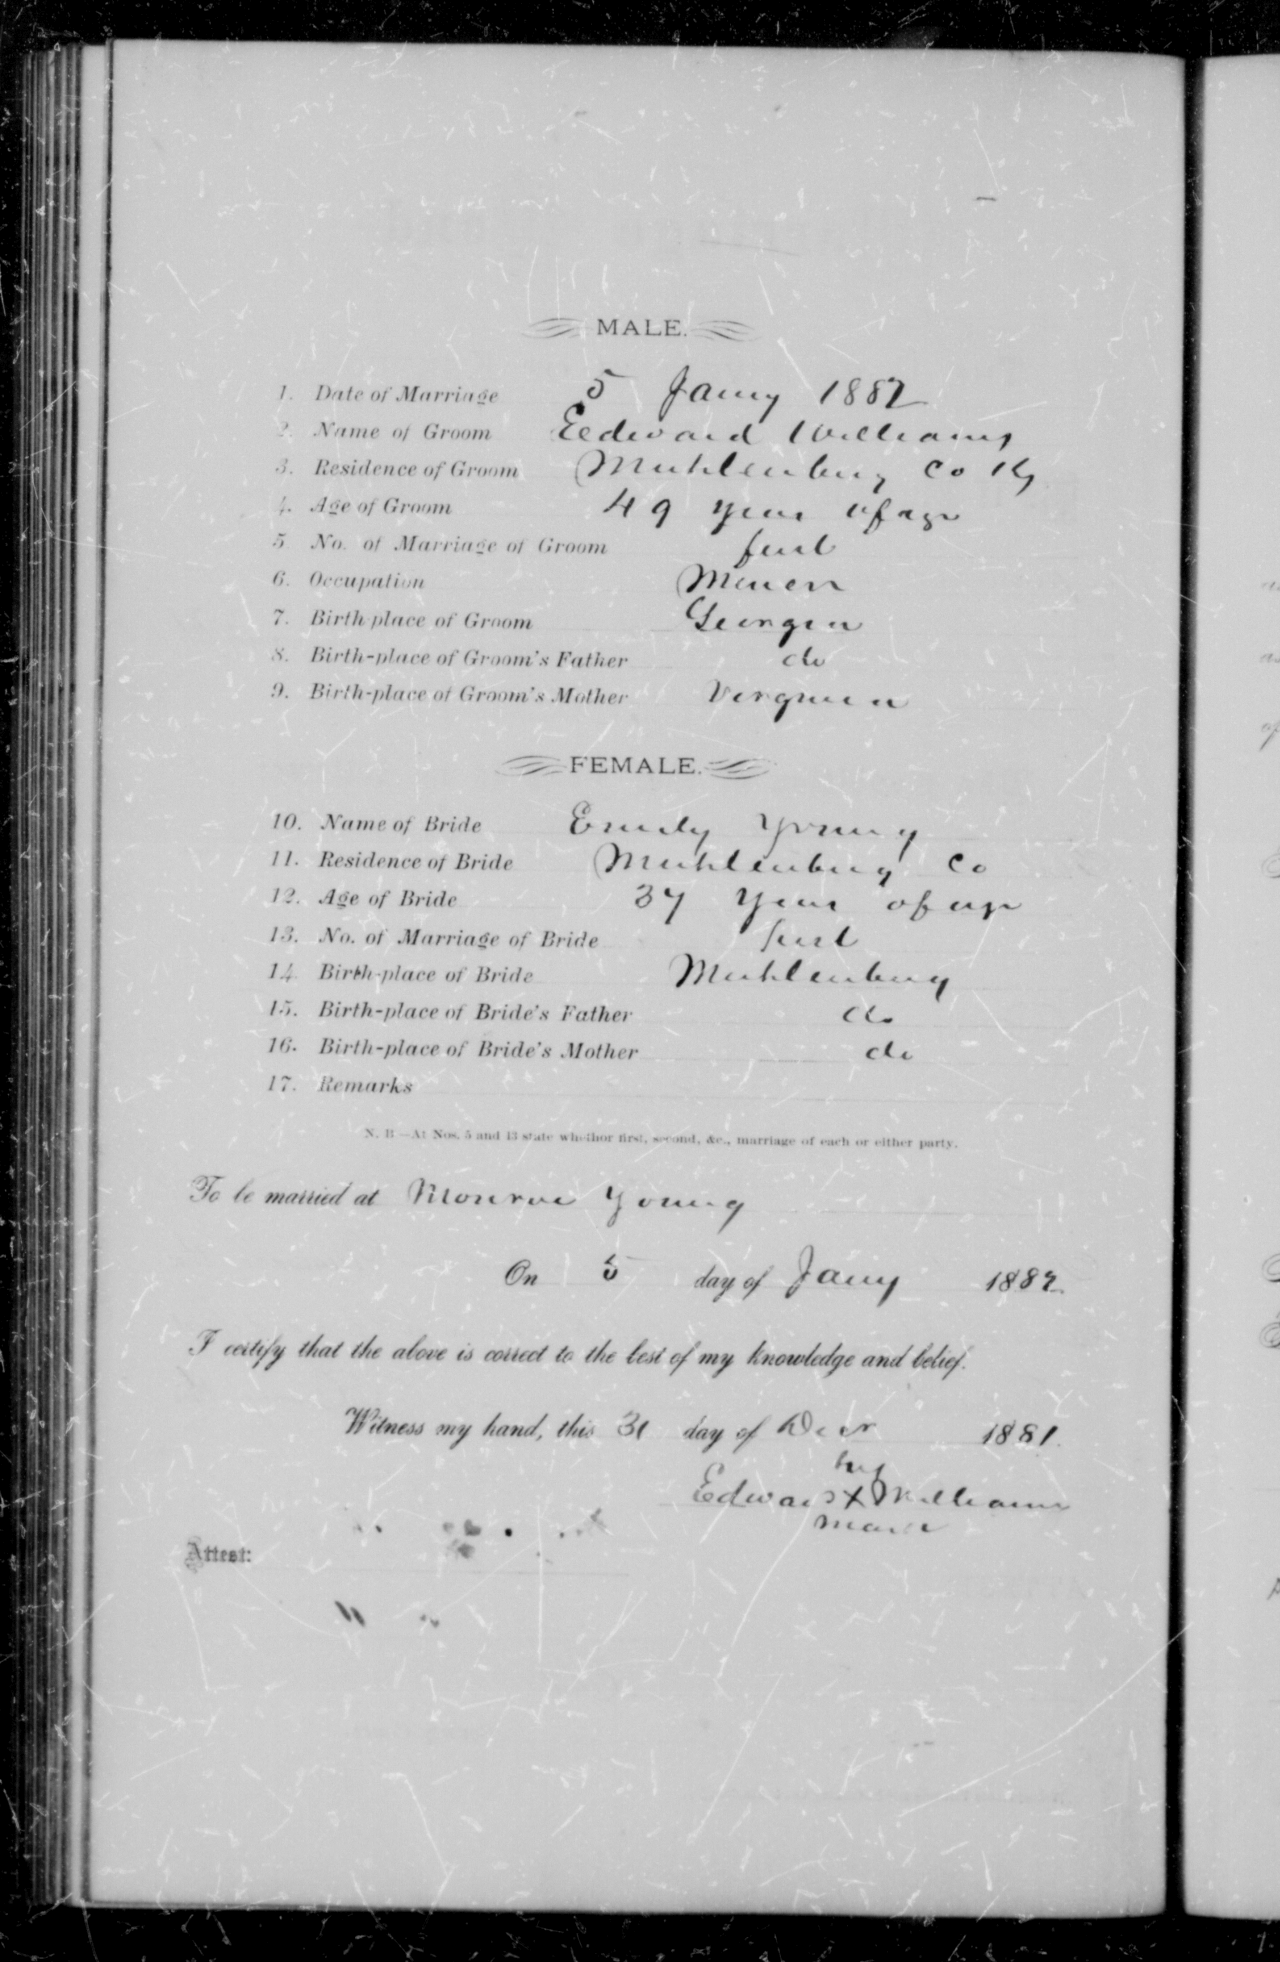 MALE.
1. Date of Marriage 5 Jany 1882
2. Name of Groom Eedward Williams
3. Residence of Groom Muhlenburg Co Ky
4. Age of Groom 49 years of age
5. No. of Marriage of Groom first
6. Occupation Miner
7. Birth-place of Groom Georgia
8. Birth-place of Groom's Father do
9. Birth-place of Groom's Mother Virginia
FEMALE.
10. Name of Bride Emily Young
11. Residence of Bride Muhlenburg Co
12. Age of Bride 37 years of age
13. No. of Marriage of Bride first
14. Birth-place of Bride Muhlenburg
15. Birth-place of Bride's Father do
16. Birth-place of Bride's Mother do
17. Remarks
N. B—At Nos. 5 and 13 state whethor first, second, &c., marriage of each or either party.
To be married at Monroe Young
On 5 day of Jany 1882.
I certify that the above is correct to the best of my knowledge and belief.
Witness my hand, this 31 day of Decr 1881.
his
Edward X Williams
mark
Attest: